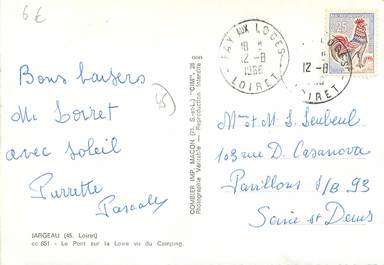 6€
Bons baisers
du Loiret
avec soleil
Purrette
Pascale
JARGEAU (45. Loiret)
cc 851 - Le Pont sur la Loire vu du Camping.
COMBIER IMP. MACON (71. S.-et-L.) "CIM"
Photographie Véritable — Reproduction Interdite
FAY AUX LOGES
18 H
12-8
1968
LOIRET
LOGES
12-8
LOIRET
Mr et M.
103 rue D. Casanova
Pavillons s/B 93
Seine St Denis